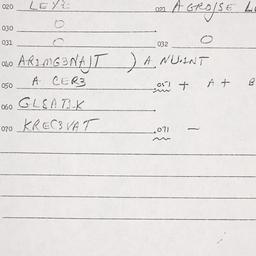 020 LEYZ 021 AGROJSE
030 O
031 O 032 O
040 AR1MG3NAJT ) A. NU1NT
050 A. CER3 051 + A + B
060 GLSAT3.K
070 KREC3VAT 071 —